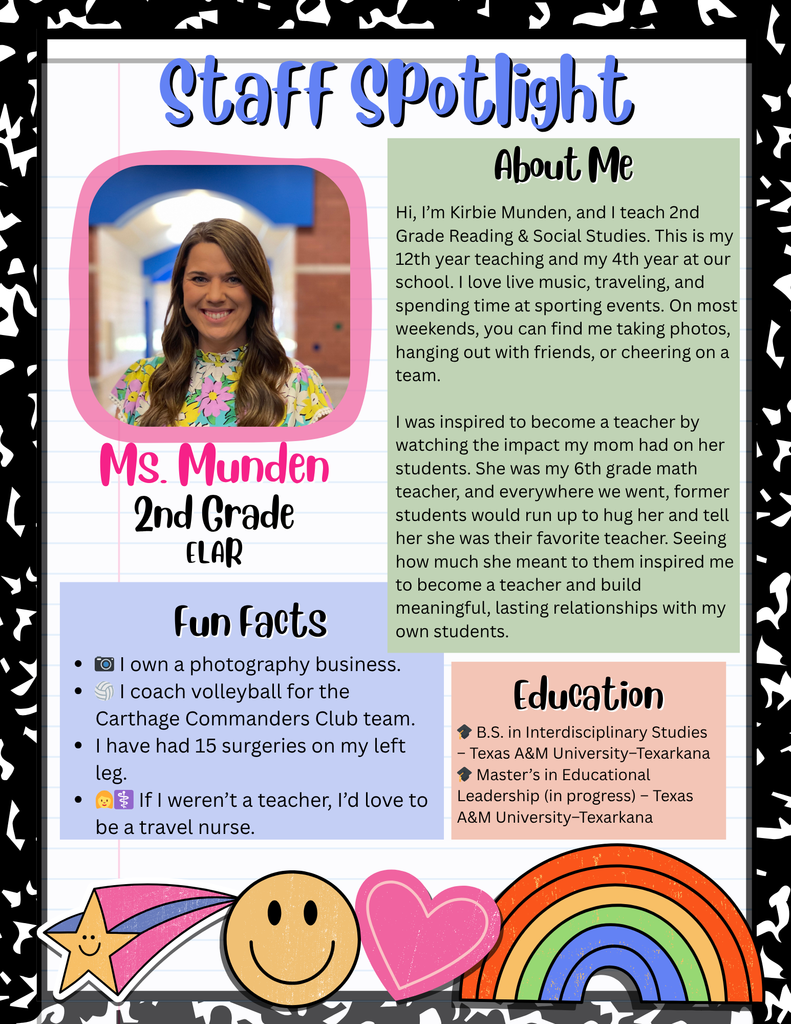 Staff Spotlight
Ms. Munden
2nd Grade
ELAR
About Me
Hi, I’m Kirbie Munden, and I teach 2nd
Grade Reading & Social Studies. This is my
12th year teaching and my 4th year at our
school. I love live music, traveling, and
spending time at sporting events. On most
weekends, you can find me taking photos,
hanging out with friends, or cheering on a
team.
I was inspired to become a teacher by
watching the impact my mom had on her
students. She was my 6th grade math
teacher, and everywhere we went, former
students would run up to hug her and tell
her she was their favorite teacher. Seeing
how much she meant to them inspired me
to become a teacher and build
meaningful, lasting relationships with my
own students.
Fun Facts
• 📷 I own a photography business.
• 🏐 I coach volleyball for the
Carthage Commanders Club team.
• I have had 15 surgeries on my left
leg.
• 👩⚕️ If I weren’t a teacher, I’d love to
be a travel nurse.
Education
🎓 B.S. in Interdisciplinary Studies
– Texas A&M University–Texarkana
🎓 Master’s in Educational
Leadership (in progress) – Texas
A&M University–Texarkana